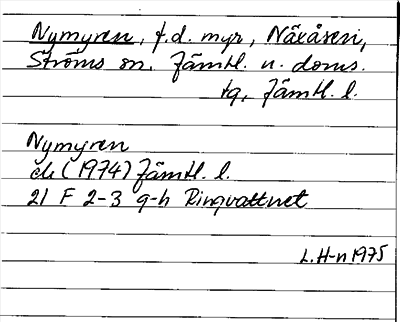 Nymyren, f.d. myr, Näxåsen,
Ströms sn, Jämtl. n. doms.
tg, Jämtl. l.
Nymyren
ek (1974) Jämtl. l.
21 F 2-3 g-h Ringvattnet
L.H-n 1975